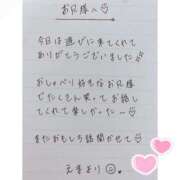 お兄様へ♡
今日は遊びに来てくれて
ありがとうございました♡
おしゃべり好きなお兄様
でたくさん笑ってお話し
てくれて楽しかったー♡
またおもしろ話聞かせて♡
えまより